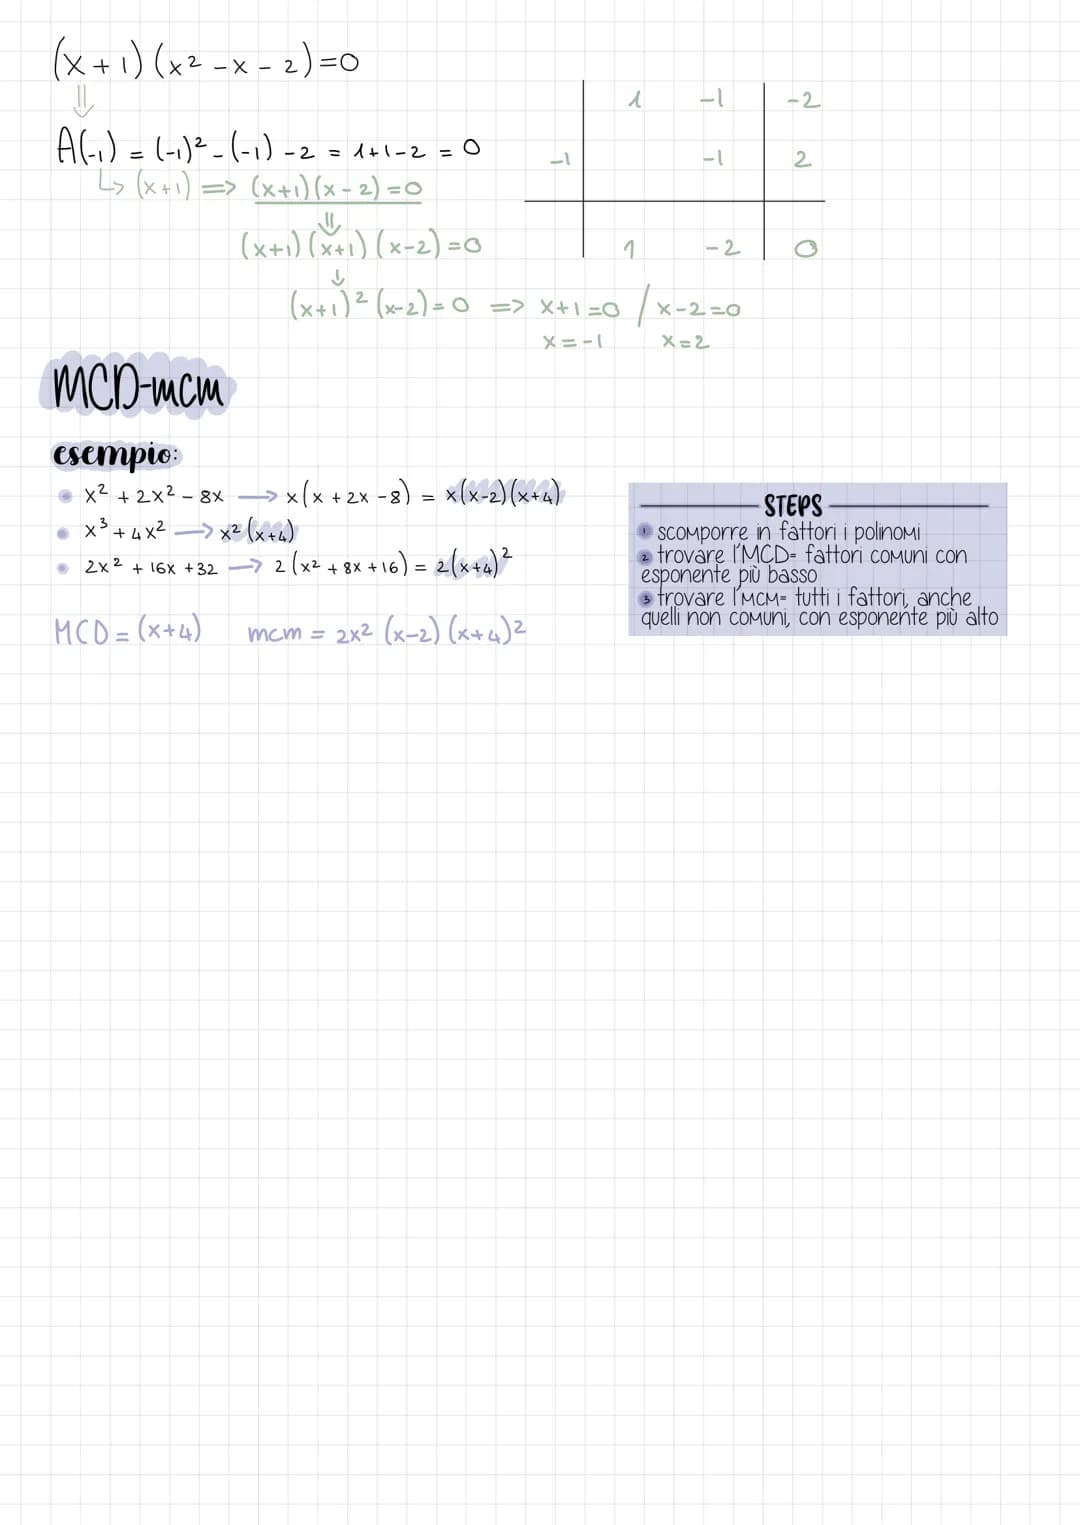 (x+1)(x² -x - 2)=0
⇓
A(-1) = (-1)² - (-1) -2 = 1+1-2 = 0
↳ (x+1) => (x+1)(x-2)=0
⇓
(x+1)(x+1)(x-2)=0
↓
(x+1)² (x-2)=0 => x+1=0 / x-2=0
x=-1 x=2
1 -1 -2
-1 -1 2
1 -2 0
MCD-mcm
esempio:
x² + 2x² - 8x → x(x + 2x - 8) = x(x-2)(x+4)
x³ + 4x² → x² (x+4)
2x² + 16x + 32 → 2(x² + 8x + 16) = 2(x+4)²
MCD = (x+4) mcm = 2x² (x-2)(x+4)2
STEPS
1 scomporre in fattori i polinomi
2 trovare l'MCD= fattori comuni con
esponente più basso
3 trovare l'MCM= tutti i fattori, anche
quelli non comuni, con esponente più alto